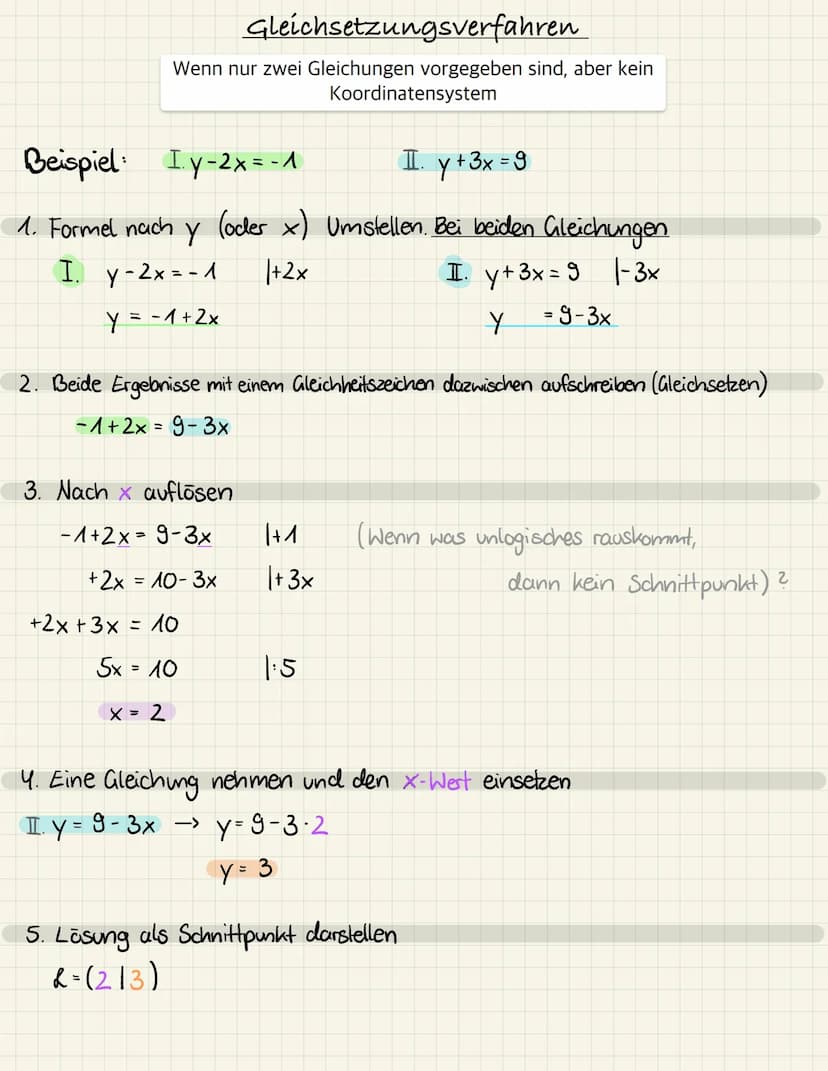 Gleichsetzungsverfahren
Wenn nur zwei Gleichungen vorgegeben sind, aber kein
Koordinatensystem
Beispiel: I. y-2x = -1 II. y+3x = 9
1. Formel nach y (oder x) Umstellen. Bei beiden Gleichungen
I. y-2x = -1 |+2x II. y+3x = 9 |-3x
y = -1+2x y = 9-3x
2. Beide Ergebnisse mit einem Gleichheitszeichen dazwischen aufschreiben (Gleichsetzen)
-1+2x = 9-3x
3. Nach x auflösen
-1+2x = 9-3x |+1 (Wenn was unlogisches rauskommt,
+2x = 10-3x |+3x dann kein Schnittpunkt) ?
+2x+3x = 10
5x = 10 |:5
x = 2
4. Eine Gleichung nehmen und den x-Wert einsetzen
II. y = 9-3x → y = 9-3·2
y = 3
5. Lösung als Schnittpunkt darstellen
L = (2|3)